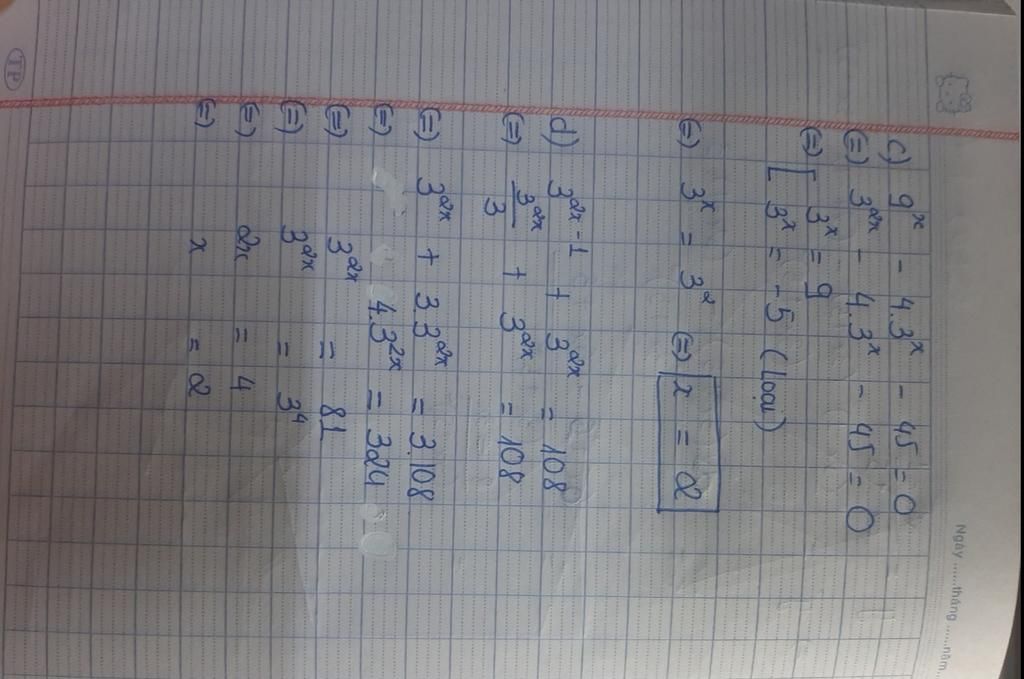 Ngày ......tháng ......năm...
c) 9^x - 4.3^x - 45 = 0
(=) 3^{2x} - 4.3^x - 45 = 0
(=) [ 3^x = 9
3^x = -5 (loại)
(=) 3^x = 3^2 (=) x = 2
d) 3^{2x-1} + 3^{2x} = 108
(=) \frac{3^{2x}}{3} + 3^{2x} = 108
(=) 3^{2x} + 3.3^{2x} = 3.108
(=) 4.3^{2x} = 324
(=) 3^{2x} = 81
(=) 3^{2x} = 3^4
(=) 2x = 4
(=) x = 2
TP